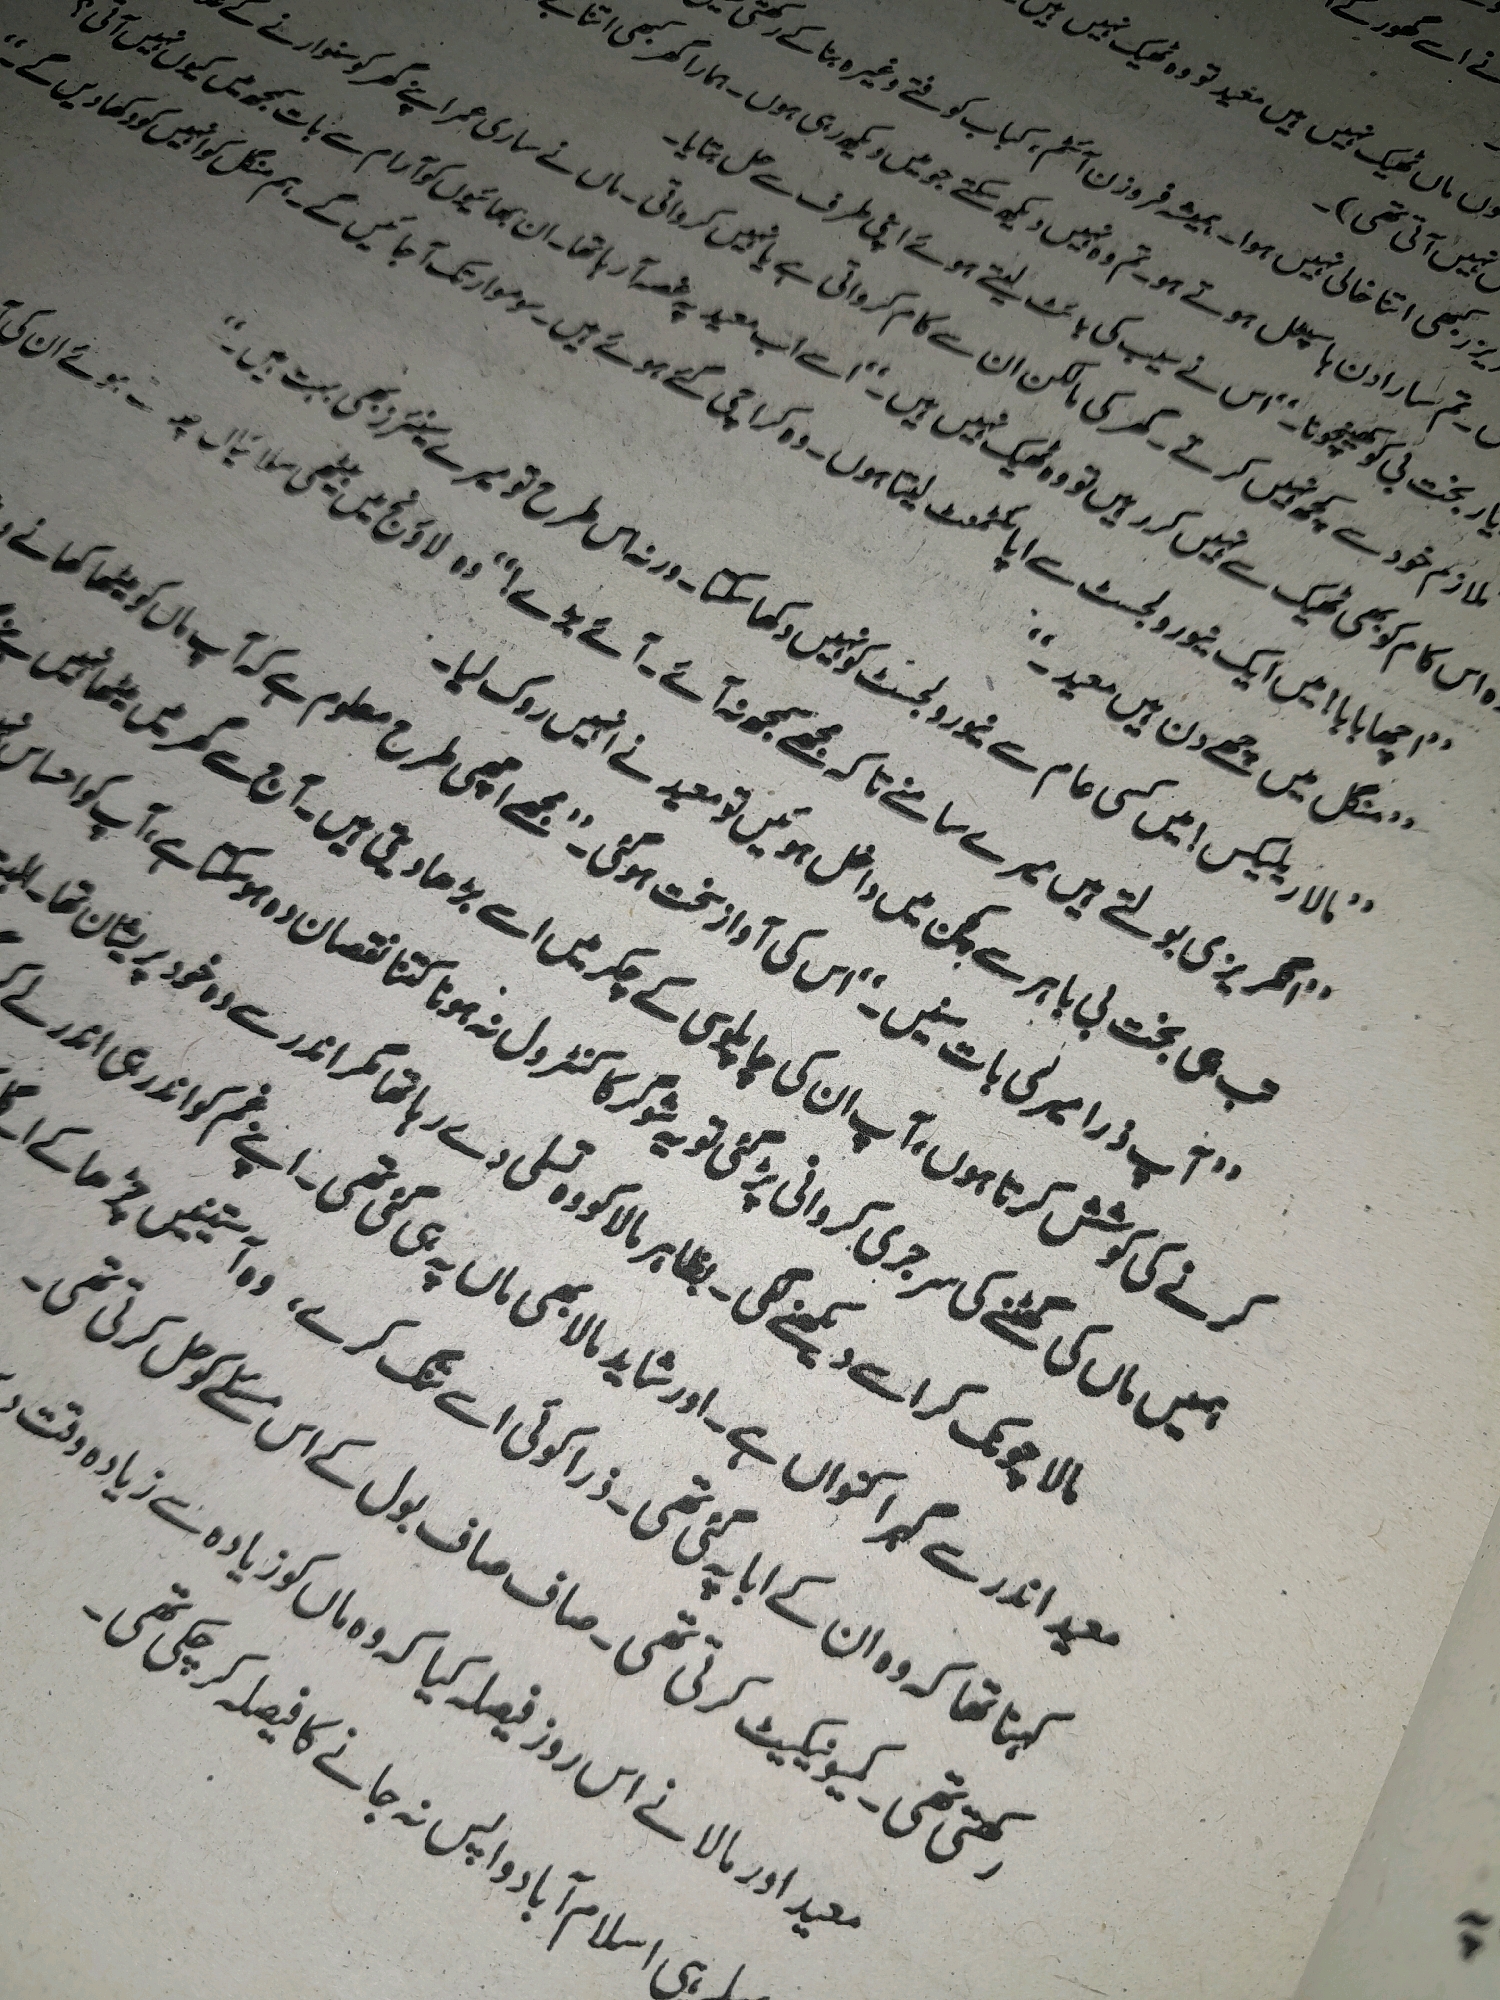 نے اسے گھور کے
وں ماں ٹھیک نہیں ہیں معید تو وہ ٹھیک نہیں ہیں
نہیں آتی تھی)۔
ریزر کبھی اتنا خالی نہیں ہوا۔ ہمیشہ فروزن آئٹم، کباب کوفتے وغیرہ بنا کے رکھتی
تم سارا دن ہاسپٹل ہوتے ہو۔ تم وہ نہیں دیکھ سکتے جو میں دیکھ رہی ہوں۔ ہمارا گھر کبھی اتنا
یار بخت بی کو کھینچو نا۔“ اس نے سیب کی بائٹ لیتے ہوئے اپنی طرف سے حل بتایا۔
ملازم خود سے کچھ نہیں کرتے۔ گھر کی مالکن ان سے کام کرواتی ہے یا نہیں کرواتی۔ ماں نے ساری عمر اپنے گھر کو سنوارنے کے
وہ اس کام کو بھی ٹھیک سے نہیں کر رہیں تو وہ ٹھیک نہیں ہیں۔“ اسے اب معید پہ غصہ آ رہا تھا۔ ان بھائیوں کو آرام سے بات سمجھ میں کیوں نہیں آتی؟
”اچھا بابا! میں ایک نیورولجسٹ سے اپائنٹمنٹ لیتا ہوں۔ وہ کراچی گئے ہوئے ہیں۔ سوموار تک آجائیں گے۔ ہم منگل کو انہیں کو دکھا دیں گے۔“
”منگل میں چھے دن ہیں معید۔“
”مالا ریلیکس! میں کسی عام سے نیورولجسٹ کو نہیں دکھا سکتا۔ ورنہ اس طرح تو میرے سینئرز بھی بہت ہیں۔“
”انگریزی بولتے ہیں میرے سامنے تاکہ مجھے سمجھ نہ آئے۔ آئے بڑے!“ وہ لاؤنج میں بیٹھی سلائیاں ہوئے ان کی
تب ہی بخت بی باہر سے کچن میں داخل ہوئیں تو معید نے انہیں روک لیا۔
”آپ ذرا میری بات سنیں۔“ اس کی آواز سخت ہو گئی۔ ”مجھے اچھی طرح معلوم ہے کہ آپ ماں کو میٹھا کھانے
کرنے کی کوشش کرتا ہوں، آپ ان کی چاپلوسی کے چکر میں اسے بڑھا دیتی ہیں۔ آج سے گھر میں میٹھا نہیں
ہمیں ماں کی گھٹنے کی سرجری کروانی پڑ گئی تو یہ شوگر کا کنٹرول نہ ہونا کتنا نقصان دہ ہو سکتا ہے، آپ کو احساس
مالا چونک کر اسے دیکھنے لگی۔ بظاہر مالا کو وہ تسلی دے رہا تھا مگر اندر سے وہ خود پریشان تھا۔
معید اندر سے گہرا کنواں ہے۔ اور شاید مالا بھی ماں پہ ہی گئی تھی۔ اپنے غم کو اندر ہی اندر
کہنا تھا کہ وہ ان کے ابا پہ گئی تھی۔ ذرا کوئی اسے تنگ کرے، وہ آستینیں چڑھا کے
رکھتی تھی۔ کمیونیکیٹ کرتی تھی۔ صاف صاف بول کے اس مسئلے کو حل کرتی تھی۔
معید اور مالا نے اس روز فیصلہ کیا کہ وہ ماں کو زیادہ سے زیادہ وقت
ہی اسلام آباد واپس نہ جانے کا فیصلہ کر چکی تھی۔